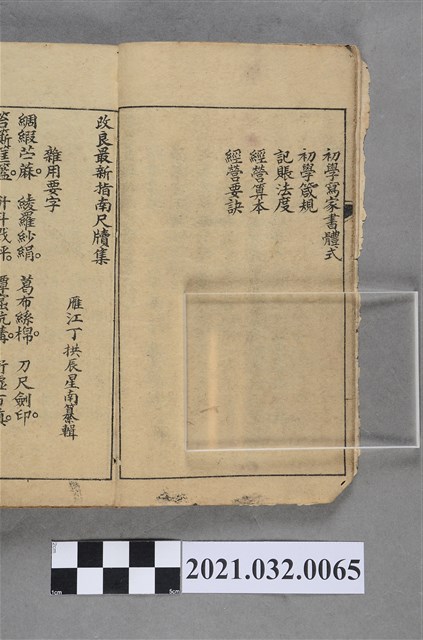 初學寫家書體式
初學箴規
記賬法度
經營算本
經營要訣
改良最新指南尺牘集
雁江丁拱辰星南纂輯
雜用要字
綢緞苧蔴。綾羅紗絹。葛布絲棉。刀尺劍印。
2021.032.0065
1cm
5cm